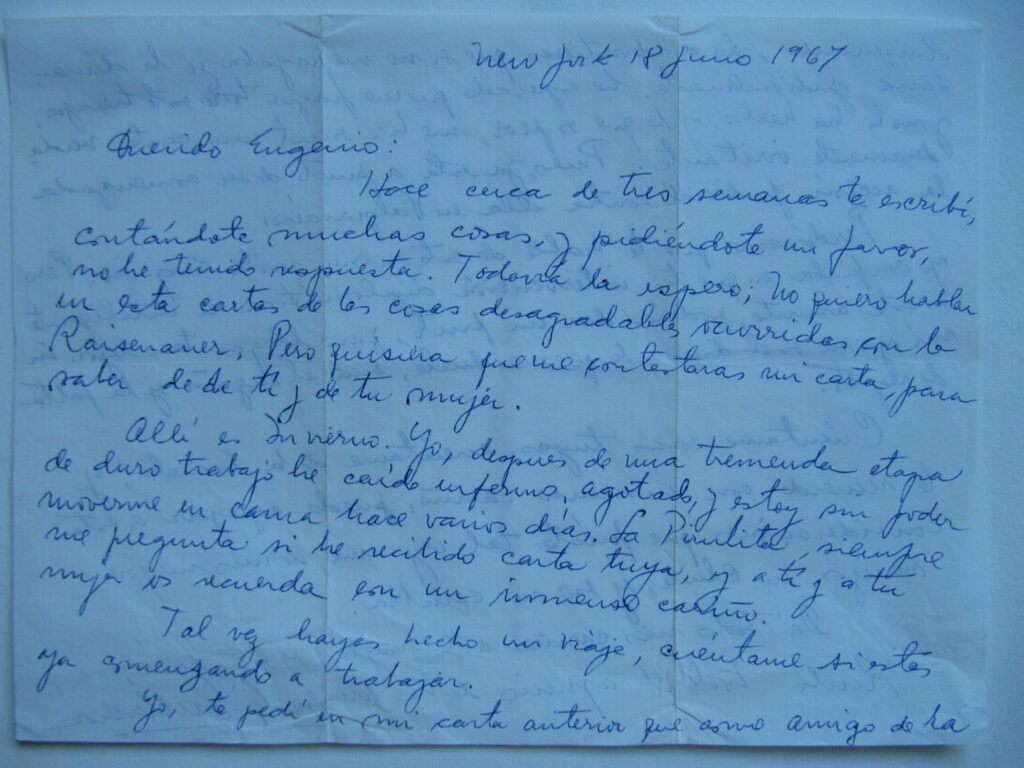 New York 18 Junio 1967
Querido Eugenio:
Hace cerca de tres semanas te escribí,
contándote muchas cosas, y pidiéndote un favor,
no he tenido respuesta. Todavía la espero; No quiero hablar
en esta carta de las cosas desagradables ocurridas con la
Raisenauer, Pero quisiera que me contestaras mi carta, para
saber de de ti y de tu mujer.
Allí es Invierno. Yo, despues de una tremenda etapa
de duro trabajo he caído enfermo, agotado, y estoy sin poder
moverme en cama hace varios días. La Pirulita, siempre
me pregunta si he recibido carta tuya, y a ti y a tu
mujer os recuerda con un inmenso cariño.
Tal vez hayas hecho un viaje, cuéntame si estás
ya comenzando a trabajar.
Yo, te pedí en mi carta anterior que como amigo de la